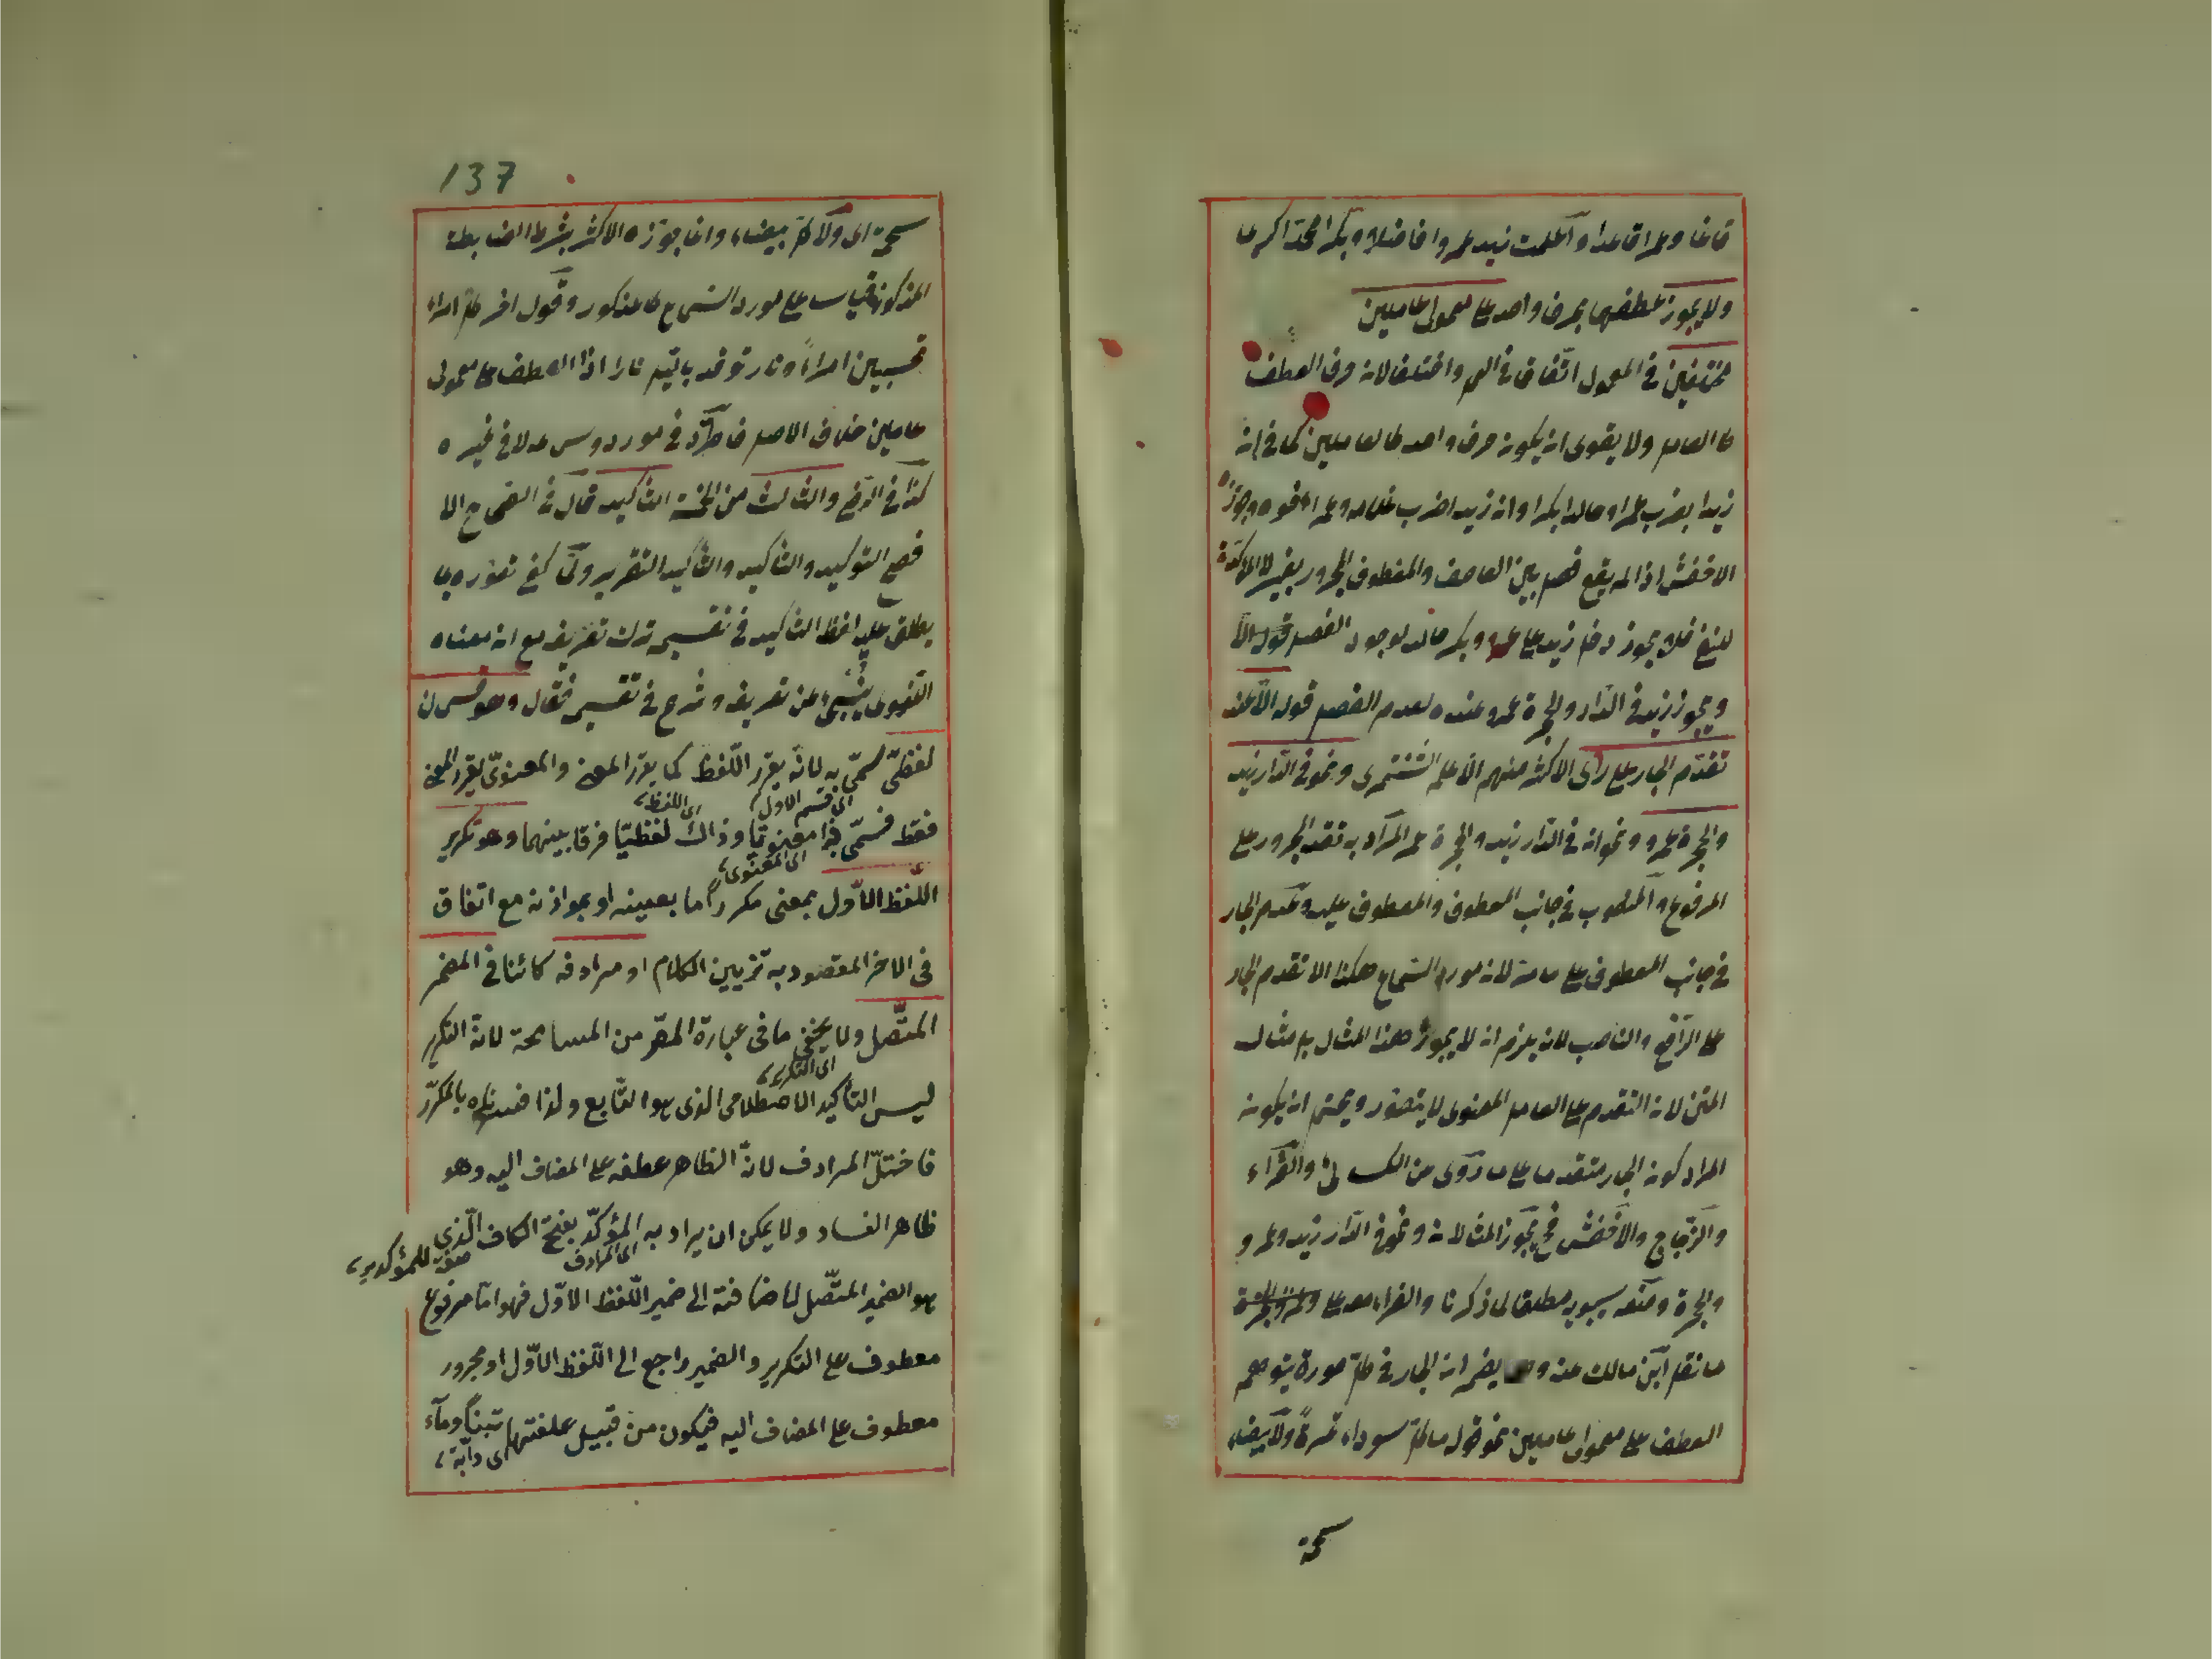 قائما وعمرا قاعدا واعلمت زيدا عمروا فاضلا وبكرا محمدا كريما
ولا يجوز عطفهما بحرف واحد على معمولى عاملين
مختلفين فى المعمول اتفاقا فى العمل واختلفا لان حرف العطف
كالعامل ولا يقوى ان يكون حرف واحد كالعاملين كما فى ان
زيدا يضرب عمرا وخالدا بكرا وان زيدا ضرب غلامه وعمرا اخوه وجوزه
الاخفش اذا لم يقع فصل بين العاطف والمعطوف المجرور بغير لا المؤكدة
للنفى فلا يجوز دخل زيد على عمرو وبكر خالد لوجود الفصل
ويجوز زيد فى الدار والحجرة عمرو عنده لعدم الفصل قوله الا عند
تقدم الجار على رأى الاكثر منهم الاعلم الشنتمرى ونحو فى الدار زيد
والحجرة عمرو ونحو ان فى الدار زيدا والحجرة عمرا المراد به تقدم المجرور على
المرفوع والمنصوب فى جانب المعطوف والمعطوف عليه وتقدم الجار
فى جانب المعطوف على عامله لان مورد السماع هكذا لا تقدم الجار
على الرافع والناصب لانه يلزم ان لا يجوز هذا المثال بل مثال
المتن لان التقدم على العامل المعنوى لا يتصور ويحتمل ان يكون
المراد كون الجار متقدما على ما روى من الكسائى والفراء
والزجاج والاخفش فح يجوز المثالان ونحو فى الدار زيد وعمرو
والحجرة ومنعه سيبويه مطلقا لما ذكرنا والفراء معه على
ما نقل ابن مالك عنه يضمر ان الجار فى كل صورة يتوهم
العطف على معمولى عاملين نحو قوله ما كل سوداء تمرة ولا بيضاء
شحمة
137
شحمة اى ولا كل بيضاء وانما جوزه الاكثر بشرط الضابطة
المذكورة قياسا على مورد السماع كالمذكور وقول اخر اكل امراء
تحسبين امراءً ونار توقد بالليل نارا اذا العطف على معمولى
عاملين خلاف الاصل فاطرد فى مورد دون ما لا فى غيره
كذا فى الرضى والثالث من الخمسة التأكيد قال فى الصحاح الا
فصح التوكيد والتأكيد والتأكيد التقرير ولما كفى تصوره بما
يطلق عليه لفظ التأكيد فى تقسيمه ترك تعريفه مع ان معناه
اللغوى ينبئ عن تعريفه وشرع فى تقسيمه فقال وهو قسمان
لفظىّ سمّى به لانه يقرر اللّفظ كما يقرر المعنى والمعنوىّ يقرر المعنى
فقط فسمّى هذا معنويّا وذاك لفظيّا فرقا بينهما وهو تكرير
اى قسم الاول
اى اللفظ
اى المعنوى
اللّفظ الاوّل بمعنى مكرر اما بعينه او بموازنه مع اتفاق
فى الاخر المقصود به تزيين الكلام او مرادفه كائنا فى المضمر
المتّصل ولا يخفى ما فى عبارة المص من المسامحة لانّ التكرير
اى التكرير
ليس التأكيد الاصطلاحى الذى هو التّابع ولذا فسرناه بالمكرّر
فاختلّ المرادف لانّ الظاهر عطفه على المضاف اليه وهو
ظاهر الفساد ولا يمكن ان يراد به المؤكّد بفتح الكاف الّذى
اى المرادف
صفة للمؤكد
هو الضمير المتّصل لاضافته الى ضمير اللّفظ الاوّل فهو امّا مرفوع
معطوف على التكرير والضمير راجع الى اللّفظ الاوّل او مجرور
معطوف على المضاف اليه فيكون من قبيل علفتها تبناً وماء
اى دابّة